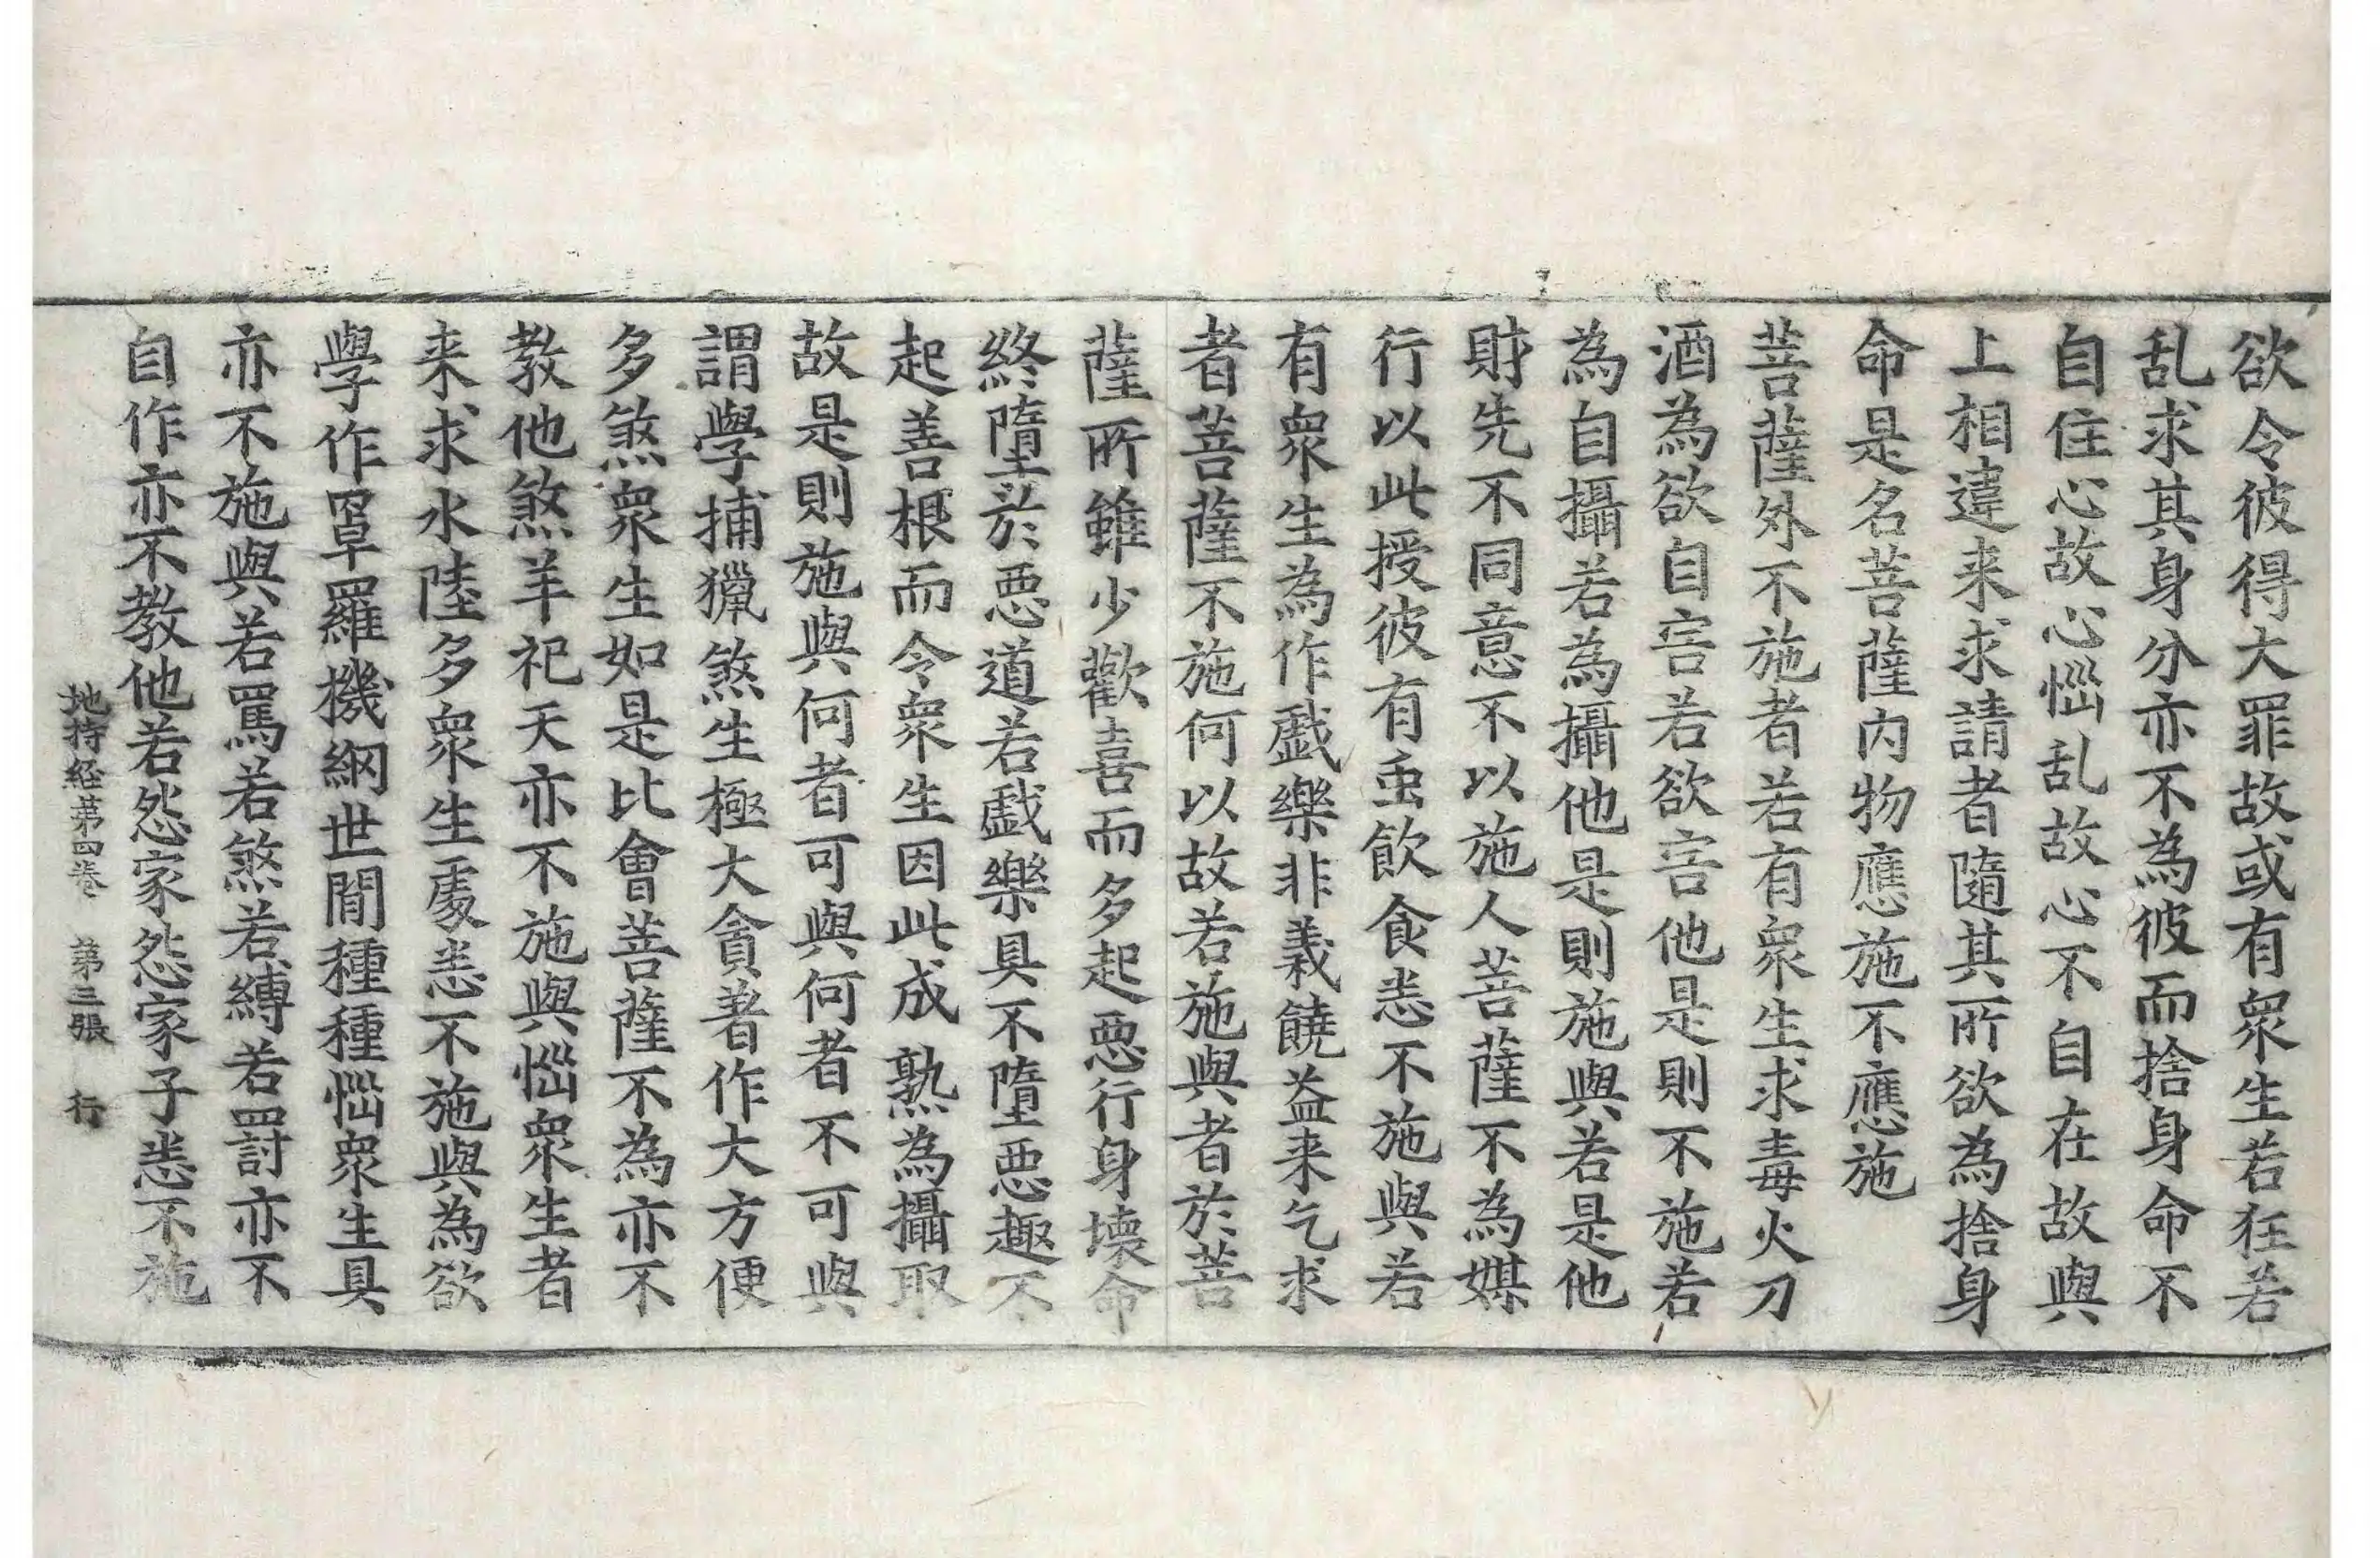 欲令彼得大罪故或有衆生若狂若
乱求其身分亦不為彼而捨身命不
自住心故心惱乱故心不自在故與
上相違来求請者隨其所欲為捨身
命是名菩薩内物應施不應施
菩薩外不施者若有衆生求毒火刀
酒為欲自害若欲害他是則不施若
為自攝若為攝他是則施與若是他
財先不同意不以施人菩薩不為媒
行以此授彼有虫飲食悉不施與若
有衆生為作戱樂非義饒益来乞求
者菩薩不施何以故若施與者於菩
薩所雖少歡喜而多起惡行身壊命
終墮於惡道若戱樂具不墮惡趣不
起善根而令衆生因此成熟為攝取
故是則施與何者可與何者不可與
謂學捕獵煞生極大貪著作大方便
多煞衆生如是比會菩薩不為亦不
教他煞羊祀天亦不施與惱衆生者
来求水陸多衆生處悉不施與為欲
學作罩羅機網世間種種惱衆生具
亦不施與若罵若煞若縛若罸亦不
自作亦不教他若怨家怨家子悉不施
地持経第四卷 第三張 行